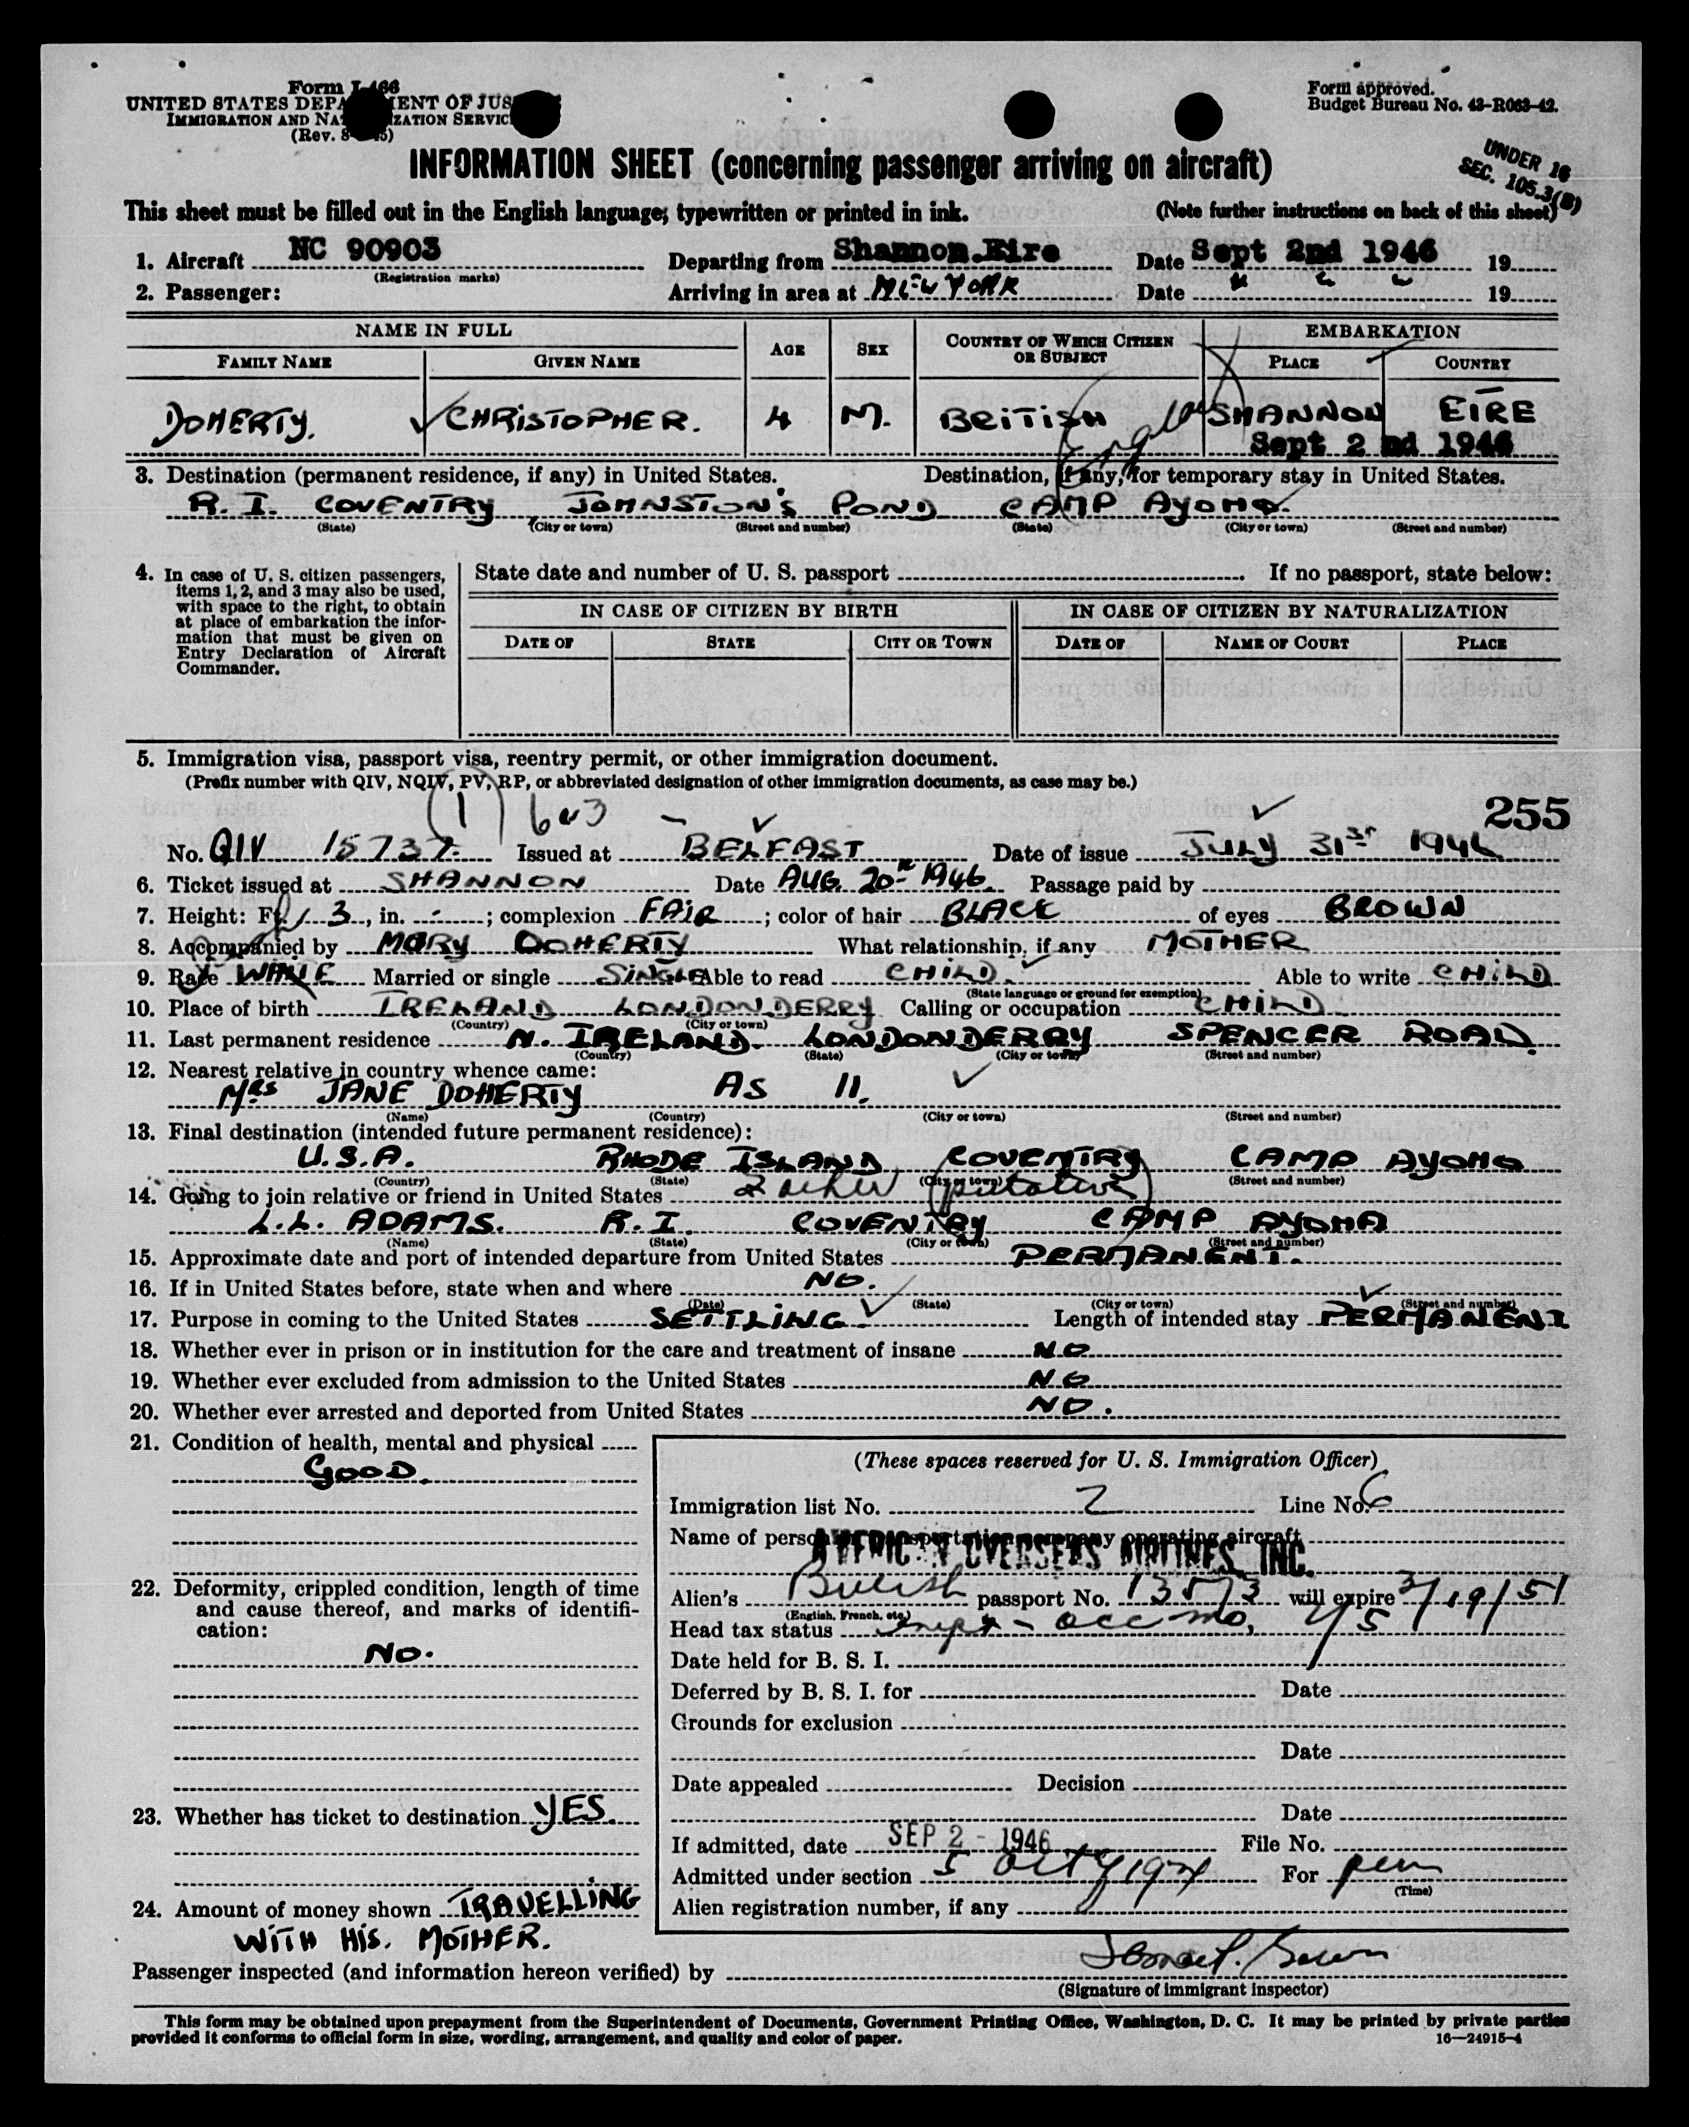 Form I-466
UNITED STATES DEPARTMENT OF JUSTICE
IMMIGRATION AND NATURALIZATION SERVICE
(Rev. 8- 45)
Form approved.
Budget Bureau No. 43-R063-42.
UNDER 16
SEC. 105.3(B)
INFORMATION SHEET (concerning passenger arriving on aircraft)
This sheet must be filled out in the English language; typewritten or printed in ink. (Note further instructions on back of this sheet)
1. Aircraft NC 90903 Departing from Shannon.Eire Date Sept 2nd 1946 19
(Registration marks)
2. Passenger: Arriving in area at NEW YORK Date " " " 19
NAME IN FULL AGE SEX COUNTRY OF WHICH CITIZEN OR SUBJECT EMBARKATION
FAMILY NAME GIVEN NAME PLACE COUNTRY
DOHERTY. CHRISTOPHER. 4 M. BRITISH SHANNON EIRE
Sept 2 nd 1946
3. Destination (permanent residence, if any) in United States. Destination, if any, for temporary stay in United States.
R. I. COVENTRY JOHNSTON'S POND CAMP AYOHO.
(State) (City or town) (Street and number) (State) (City or town) (Street and number)
4. In case of U. S. citizen passengers, items 1, 2, and 3 may also be used, with space to the right, to obtain at place of embarkation the information that must be given on Entry Declaration of Aircraft Commander.
State date and number of U. S. passport . If no passport, state below:
IN CASE OF CITIZEN BY BIRTH IN CASE OF CITIZEN BY NATURALIZATION
DATE OF STATE CITY OR TOWN DATE OF NAME OF COURT PLACE
5. Immigration visa, passport visa, reentry permit, or other immigration document.
(Prefix number with QIV, NQIV, PV, RP, or abbreviated designation of other immigration documents, as case may be.)
(1) 603 255
No. QIV 15737 Issued at BELFAST Date of issue JULY 31ST 1946
6. Ticket issued at SHANNON Date AUG. 20TH 1946. Passage paid by
7. Height: Ft. 3, in. -; complexion FAIR; color of hair BLACK of eyes BROWN
8. Accompanied by MARY DOHERTY What relationship, if any MOTHER
9. Race WHITE Married or single SINGLE Able to read CHILD. Able to write CHILD
(State language or ground for exemption)
10. Place of birth IRELAND LONDONDERRY Calling or occupation CHILD
(Country) (City or town)
11. Last permanent residence N. IRELAND. LONDONDERRY SPENCER ROAD.
(Country) (State) (City or town) (Street and number)
12. Nearest relative in country whence came:
MRS JANE DOHERTY AS 11.
(Name) (Country) (City or town) (Street and number)
13. Final destination (intended future permanent residence):
U.S.A. RHODE ISLAND COVENTRY CAMP AYOHO
(Country) (State) (City or town) (Street and number)
14. Going to join relative or friend in United States father (putative)
L.L. ADAMS. R.I. COVENTRY CAMP AYOHA
(Name) (State) (City or town) (Street and number)
15. Approximate date and port of intended departure from United States PERMANENT.
16. If in United States before, state when and where NO.
(Date) (State) (City or town) (Street and number)
17. Purpose in coming to the United States SETTLING Length of intended stay PERMANENT
18. Whether ever in prison or in institution for the care and treatment of insane NO
19. Whether ever excluded from admission to the United States NO
20. Whether ever arrested and deported from United States NO.
21. Condition of health, mental and physical
GOOD.
22. Deformity, crippled condition, length of time and cause thereof, and marks of identification:
NO.
23. Whether has ticket to destination YES.
24. Amount of money shown TRAVELLING
WITH HIS. MOTHER.
(These spaces reserved for U. S. Immigration Officer)
Immigration list No. 2 Line No. 6
Name of person or transportation company operating aircraft
AMERICAN OVERSEAS AIRLINES, INC.
Alien's British passport No. 13573 will expire 3/19/51
(English, French, etc.)
Head tax status
Date held for B. S. I.
Deferred by B. S. I. for Date
Grounds for exclusion
Date
Date appealed Decision
Date
If admitted, date SEP 2 - 1946 File No.
Admitted under section 5 act of 1924 For perm
(Time)
Alien registration number, if any
Passenger inspected (and information hereon verified) by
(Signature of immigrant inspector)
This form may be obtained upon prepayment from the Superintendent of Documents, Government Printing Office, Washington, D. C. It may be printed by private parties
provided it conforms to official form in size, wording, arrangement, and quality and color of paper. 16—24915-4